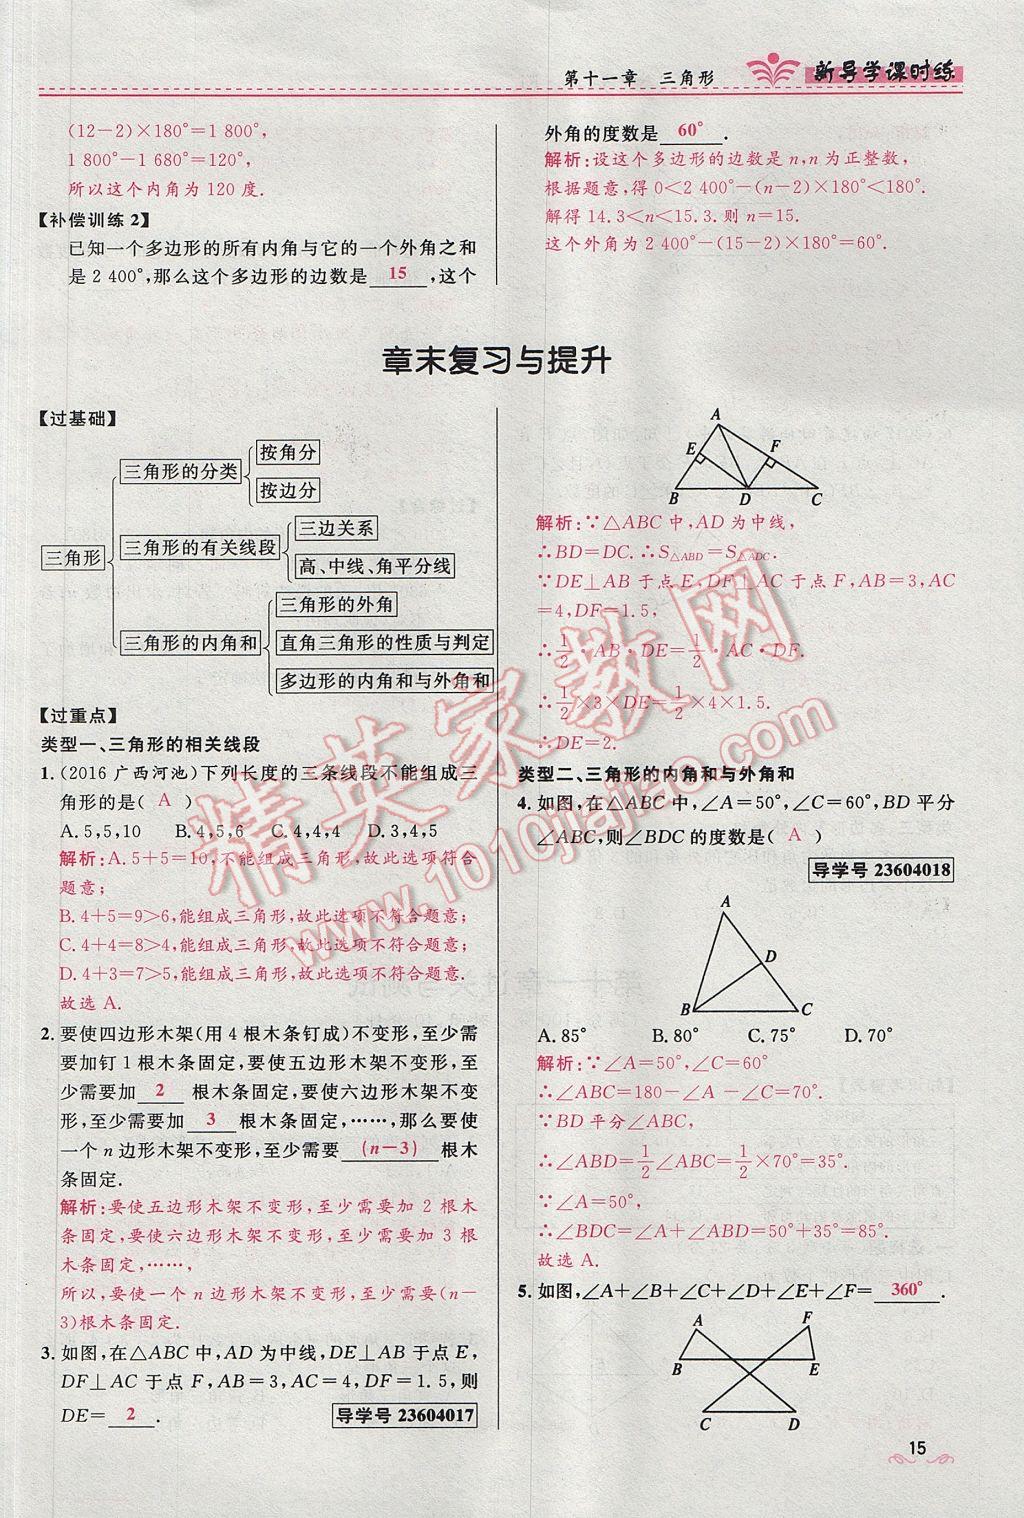 第十一章 三角形
新导学课时练
(12-2)×180°=1 800°,
1 800°-1 680°=120°,
所以这个内角为 120 度.
【补偿训练 2】
已知一个多边形的所有内角与它的一个外角之和
是 2 400°,那么这个多边形的边数是 15 ,这个
外角的度数是 60° .
解析:设这个多边形的边数是 n,n 为正整数,
根据题意,得 0<2 400°-(n-2)×180°<180°.
解得 14.3<n<15.3. 则 n=15.
这个外角为 2 400°-(15-2)×180°=60°.
章末复习与提升
【过基础】
三角形
三角形的分类
按角分
按边分
三角形的有关线段
三边关系
高、中线、角平分线
三角形的内角和
三角形的外角
直角三角形的性质与判定
多边形的内角和与外角和
【过重点】
类型一、三角形的相关线段
1. (2016 广西河池)下列长度的三条线段不能组成三
角形的是( A )
A. 5,5,10 B. 4,5,6 C. 4,4,4 D. 3,4,5
解析:A. 5+5=10,不能组成三角形,故此选项符合
题意;
B. 4+5=9>6,能组成三角形,故此选项不符合题意;
C. 4+4=8>4,能组成三角形,故此选项不符合题意;
D. 4+3=7>5,能组成三角形,故此选项不符合题意.
故选 A.
2. 要使四边形木架(用 4 根木条钉成)不变形,至少需
要加钉 1 根木条固定,要使五边形木架不变形,至
少需要加 2 根木条固定,要使六边形木架不变
形,至少需要加 3 根木条固定,……,那么要使
一个 n 边形木架不变形,至少需要 (n-3) 根木
条固定.
解析:要使五边形木架不变形,至少需要加 2 根木
条固定,要使六边形木架不变形,至少需要加 3 根
木条固定,……,
所以,要使一个 n 边形木架不变形,至少需要(n-
3)根木条固定.
3. 如图,在△ABC 中,AD 为中线,DE⊥AB 于点 E,
DF⊥AC 于点 F,AB=3,AC=4,DF=1.5,则
DE= 2 . 导学号 23604017
A
E
F
B
D
C
解析:∵△ABC 中,AD 为中线,
∴BD=DC. ∴S△ABD=S△ADC.
∵DE⊥AB 于点 E,DF⊥AC 于点 F,AB=3,AC
=4,DF=1.5,
∴1/2·AB·DE=1/2·AC·DF.
∴1/2×3×DE=1/2×4×1.5.
∴DE=2.
类型二、三角形的内角和与外角和
4. 如图,在△ABC 中,∠A=50°,∠C=60°,BD 平分
∠ABC,则∠BDC 的度数是( A )
导学号 23604018
A
D
B
C
A. 85° B. 80° C. 75° D. 70°
解析:∵∠A=50°,∠C=60°
∴∠ABC=180-∠A-∠C=70°.
∵BD 平分∠ABC,
∴∠ABD=1/2∠ABC=1/2×70°=35°.
∵∠A=50°,
∴∠BDC=∠A+∠ABD=50°+35°=85°.
故选 A.
5. 如图,∠A+∠B+∠C+∠D+∠E+∠F= 360° .
A
F
B
E
C
D
15
精英家教网
www.1010jiajiao.com